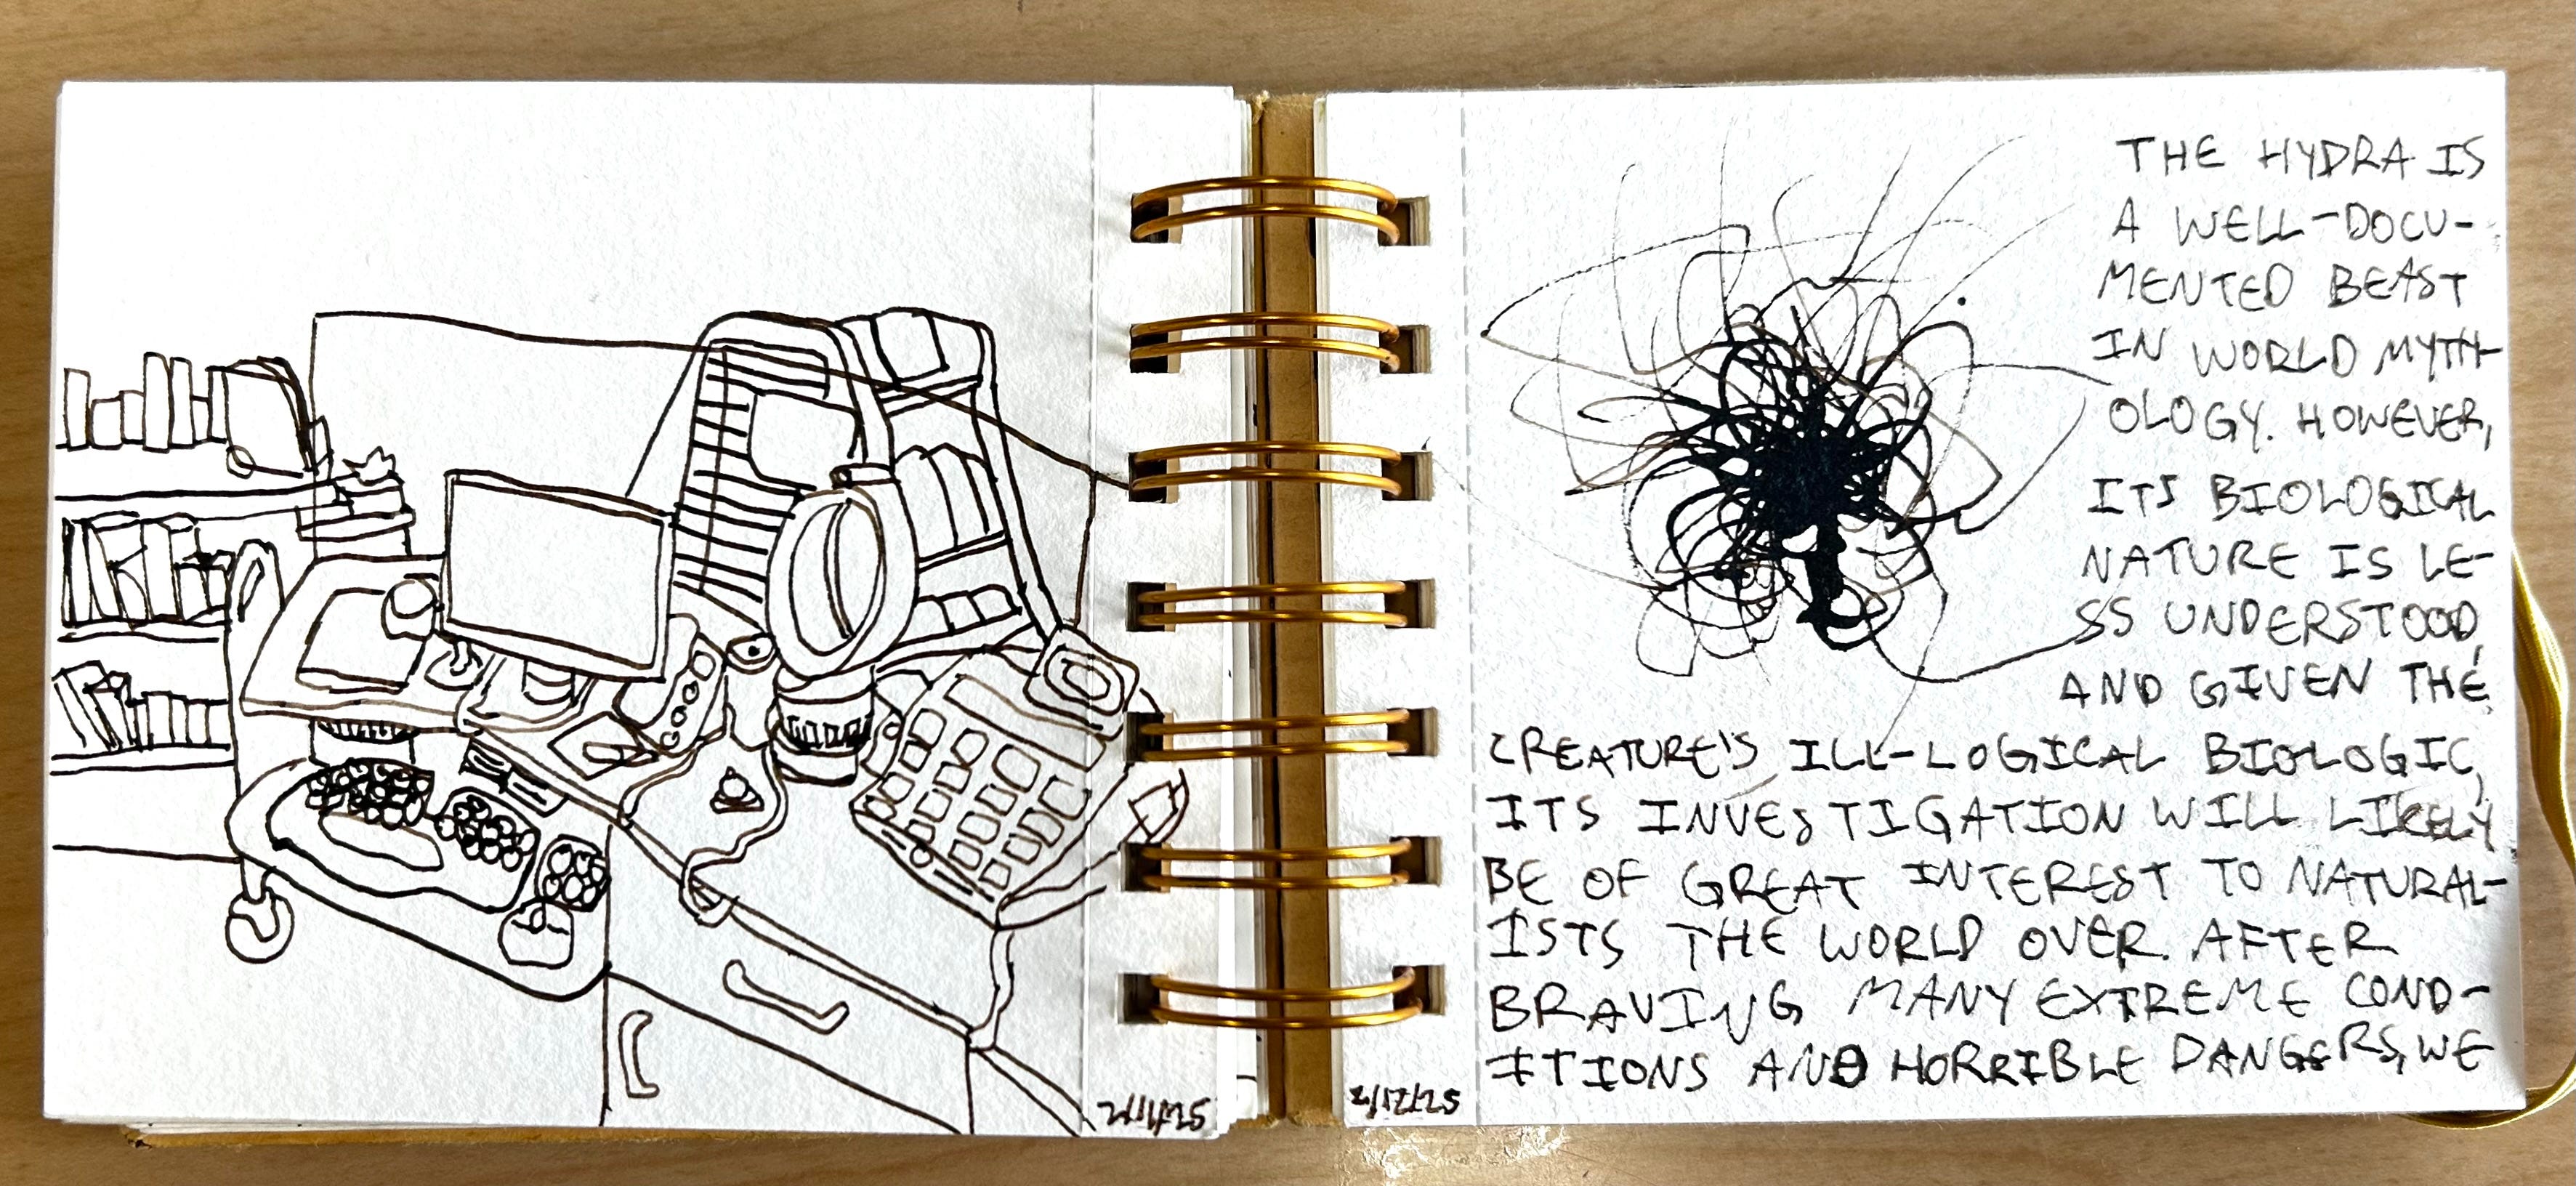 2/11/25
2/12/25
THE HYDRA IS
A WELL-DOCU-
MENTED BEAST
IN WORLD MYTH-
OLOGY. HOWEVER,
ITS BIOLOGICAL
NATURE IS LE-
SS UNDERSTOOD,
AND GIVEN THE
CREATURE'S ILL-LOGICAL BIOLOGIC,
ITS INVESTIGATION WILL LIKELY
BE OF GREAT INTEREST TO NATURAL-
ISTS THE WORLD OVER. AFTER
BRAVING MANY EXTREME COND-
ITIONS AND HORRIBLE DANGERS, WE